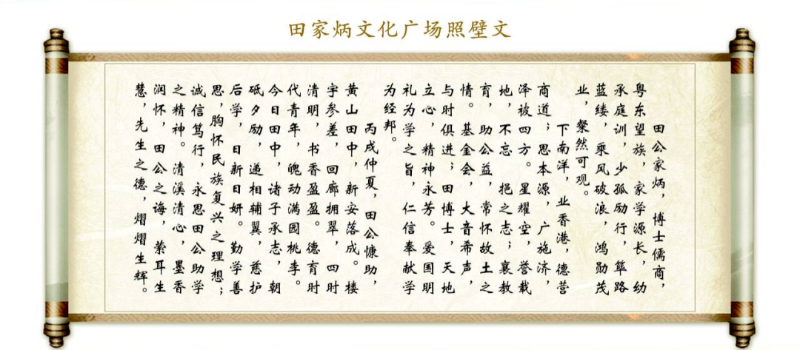 田家炳文化广场照壁文
田公家炳，博士儒商，
粤东望族，家学源长，幼
承庭训，少孤励行，筚路
蓝缕，乘风破浪，鸿勋茂
业，粲然可观。
下南洋，业香港，德营
商道；思本源，广施济，
泽被四方。星耀空，誉载
地，不忘挹之志；襄教
育，助公益，常怀故土之
情。基金会，大音希声，
与时俱进；田博士，天地
立心，精神永芳。爱国明
礼为学之旨，仁信奉献学
为经邦。
丙戌仲夏，田公慷助，
黄山田中，新安落成。楼
宇参差，回廊拥翠，四时
清明，书香盈盈。德育时
代青年，魄动满园桃李。
今日田中，诸子承志，朝
砥夕励，递相辅翼，慈护
后学，日新日妍。勤学善
思，胸怀民族复兴之理想；
诚信笃行，永思田公助学
之精神。清溪清心，墨香
润怀，田公之诲，萦耳生
慧，先生之德，熠熠生辉。